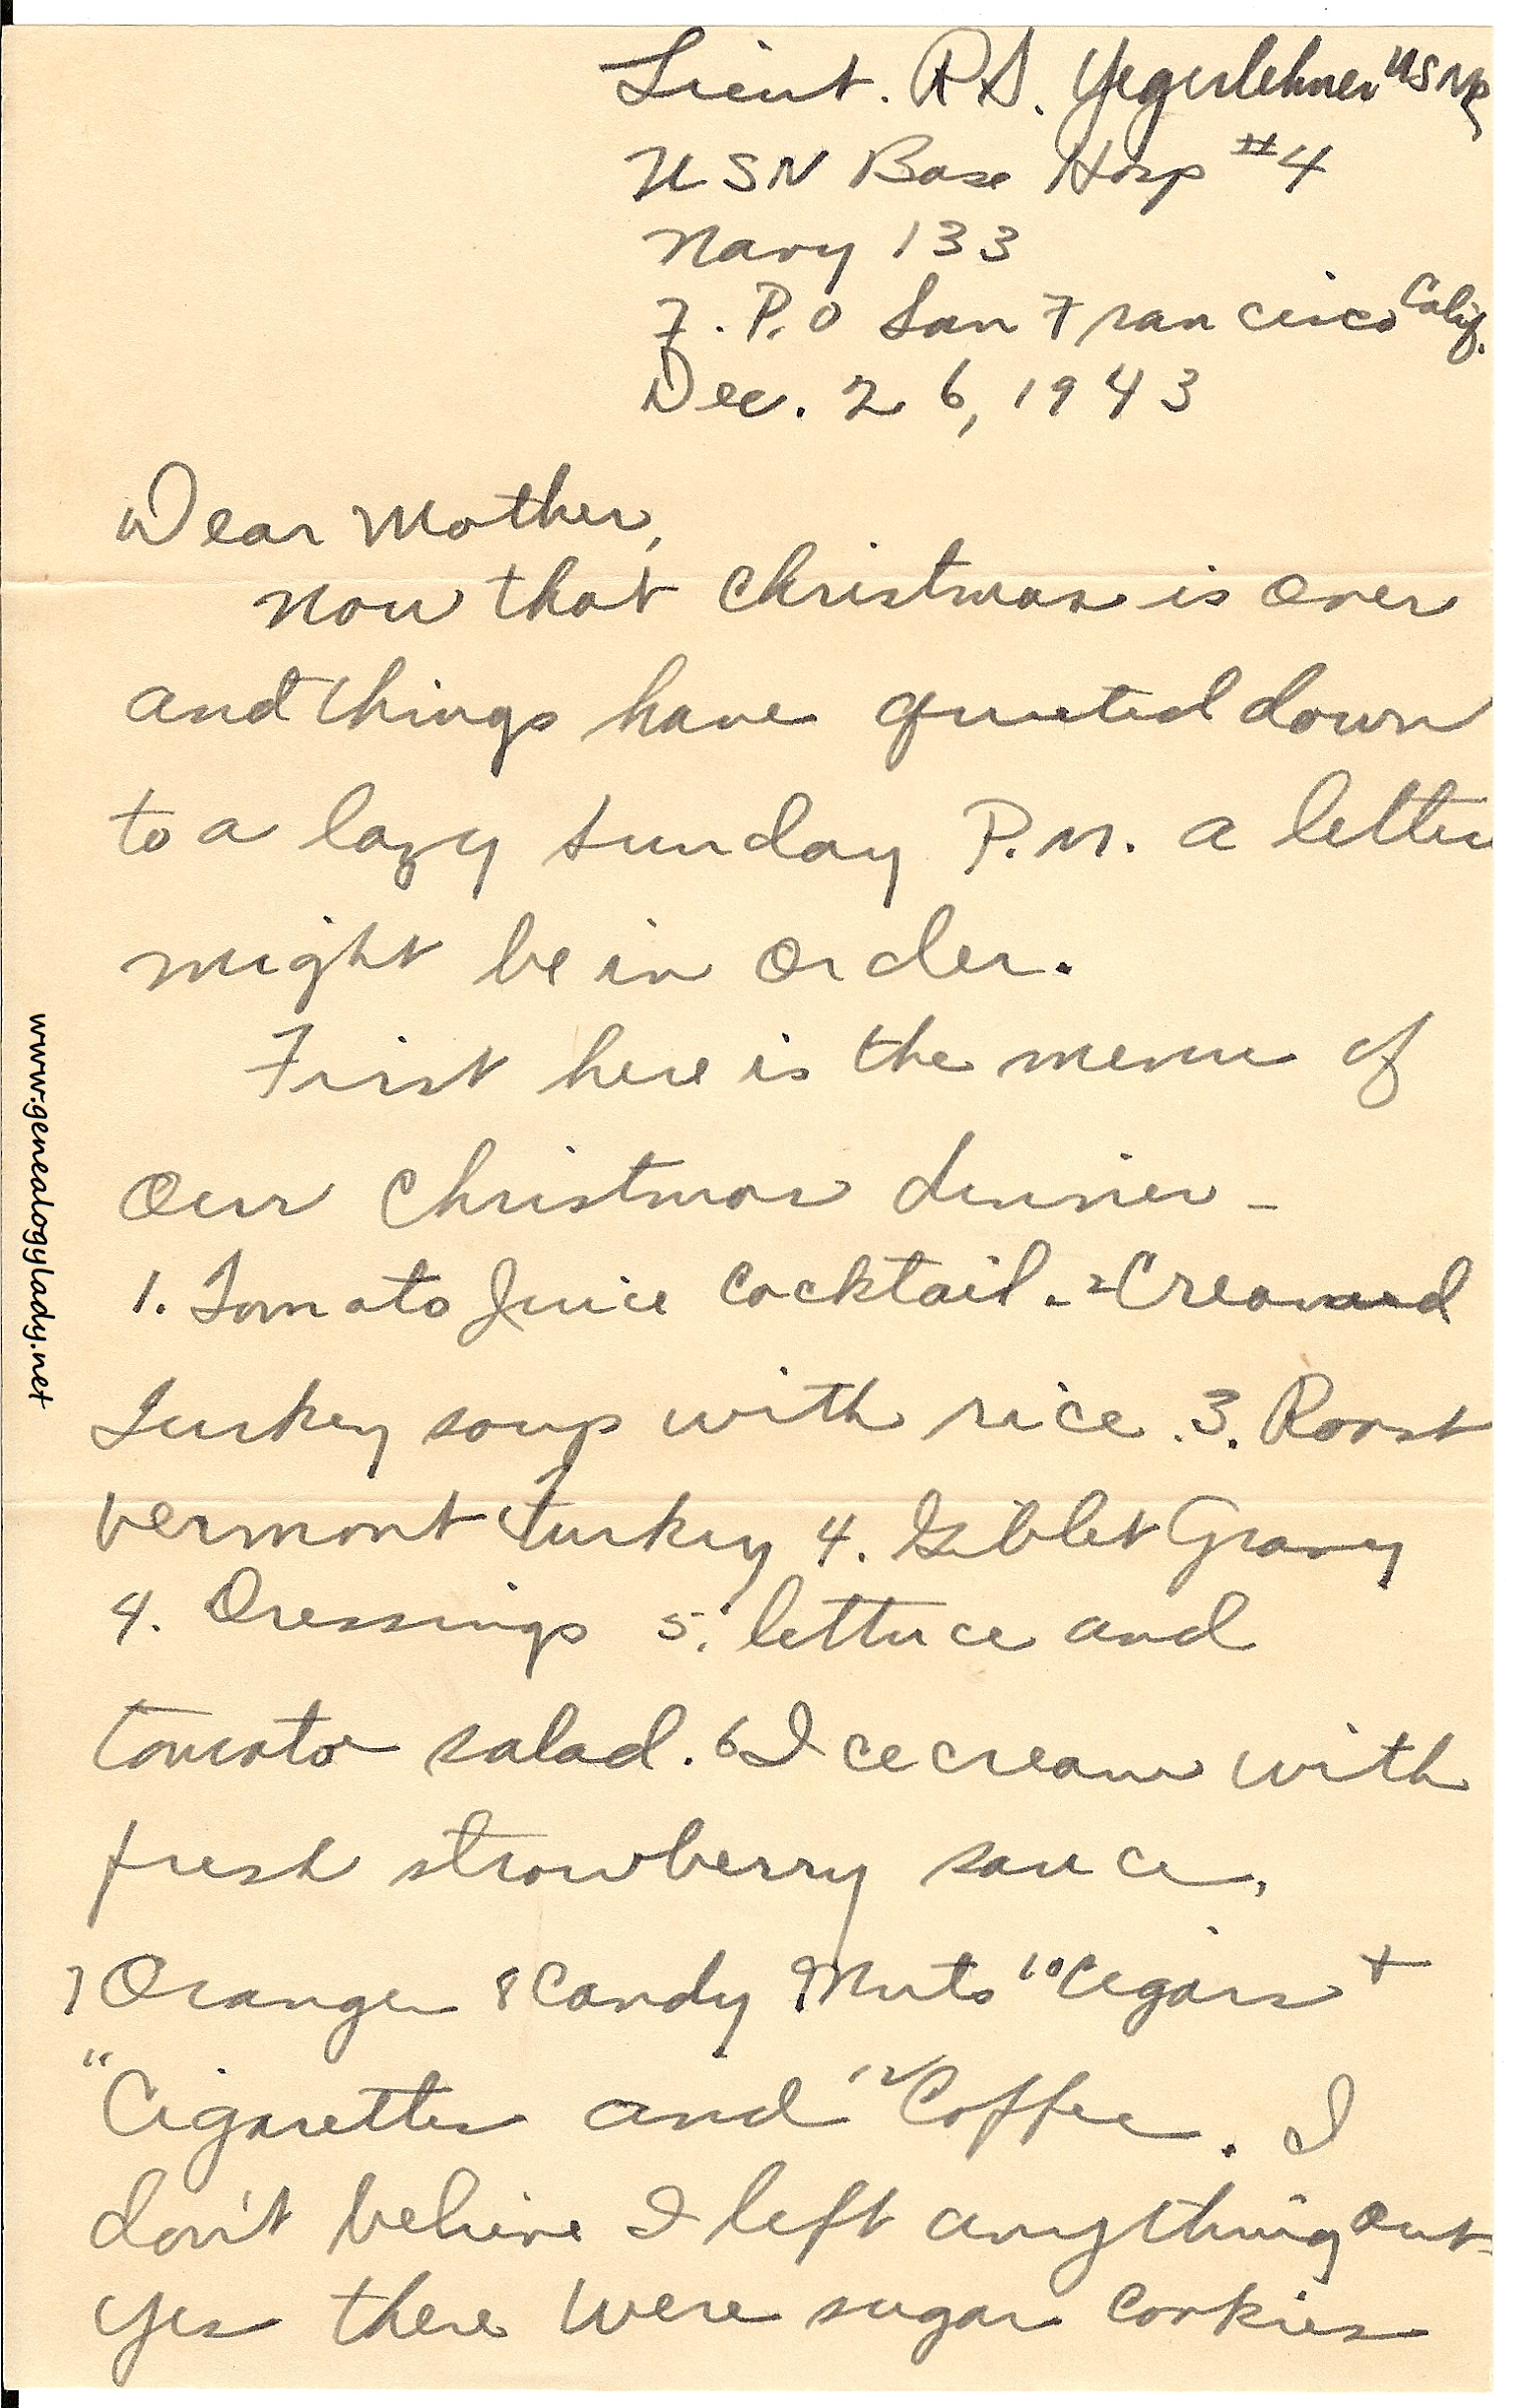 Lieut. R.S. Yegerlehner USNR
USN Base Hosp #4
Navy 133
F.P.O San Francisco Calif.
Dec. 26, 1943
Dear Mother,
Now that Christmas is over
and things have quieted down
to a lazy Sunday P.M. a letter
might be in order.
First here is the menu of
our Christmas dinner -
1. Tomato Juice Cocktail. - 2 Creamed
Turkey soup with rice. 3. Roast
Vermont Turkey 4. Giblet Gravy
4. Dressings 5. lettuce and
tomato salad. 6 Ice cream with
fresh strawberry sauce,
7 Oranges 8 Candy 9 Nuts 10 Cigars +
11 Cigarettes and 12 Coffee. I
don't believe I left anything out-
yes there were sugar cookies
www.genealogylady.net